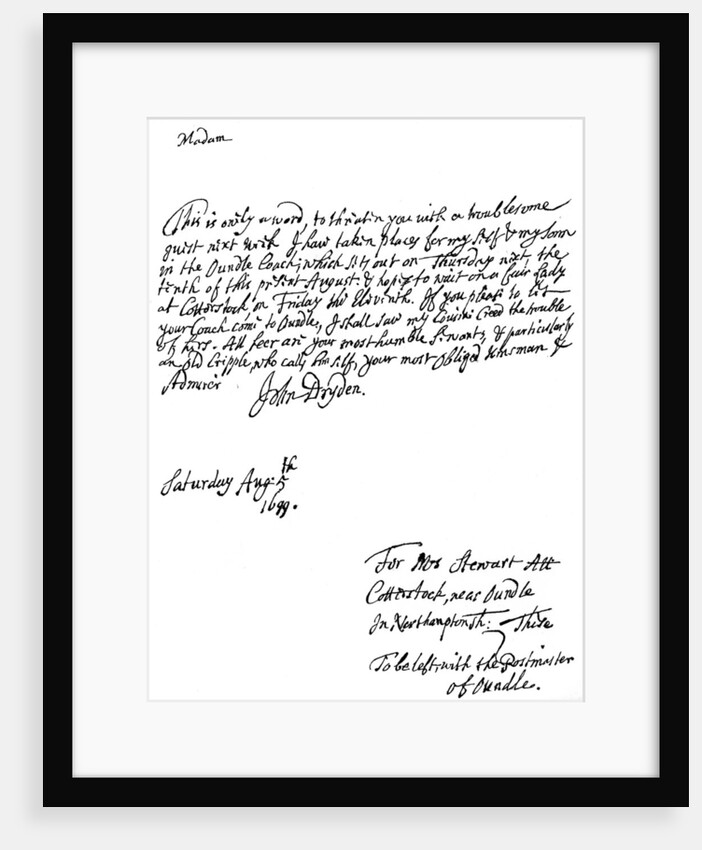 Madam
This is only a word, to threaten you with a troublesome
guest next week I have taken places for my self & my sonn
in the Oundle Coach, which sets out on Thursday next the
tenth of this present August: & hope to wait on a fair Lady
at Cotterstock on Friday the Eleventh. If you please to let
your Coach come to Oundle, I shall save my Cousin Creed the trouble
of hers. All heer are your most humble Servants, & particularly
an old Cripple, who calls him self, your most obliged Kinsman &
Admirer John Dryden.
Saturday Aug: 5th
1699.
For Mrs Stewart Att
Cotterstock, near Oundle
In Northamptonsh: These
To be left with the Postmaster
of Oundle.